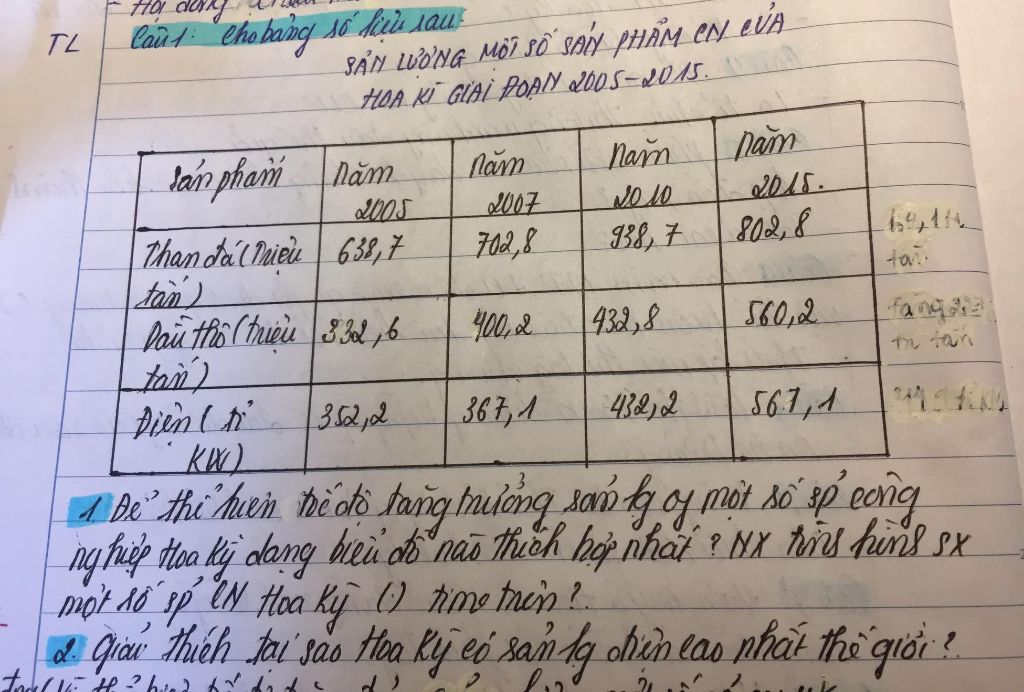 Câu 1: Cho bảng số liệu sau:
TL
SẢN LƯỢNG MỘT SỐ SẢN PHẨM CN CỦA
HOA KÌ GIAI ĐOẠN 2005-2015.
Sản phẩm Năm 2005 Năm 2007 Năm 2010 Năm 2015.
Than đá (Triệu tấn) 638,7 702,8 938,7 802,8
Dầu thô (triệu tấn) 332,6 400,2 432,8 560,2
Điện (tỉ KW) 352,2 367,1 432,2 567,1
1. Để thể hiện tốc độ tăng trưởng sản lg of một số sp công
nghiệp Hoa Kỳ dạng biểu đồ nào thích hợp nhất? NX tình hình SX
một số sp CN Hoa Kỳ () time trên?
2. Giải thích tại sao Hoa Kỳ có sản lg điện cao nhất thế giới?